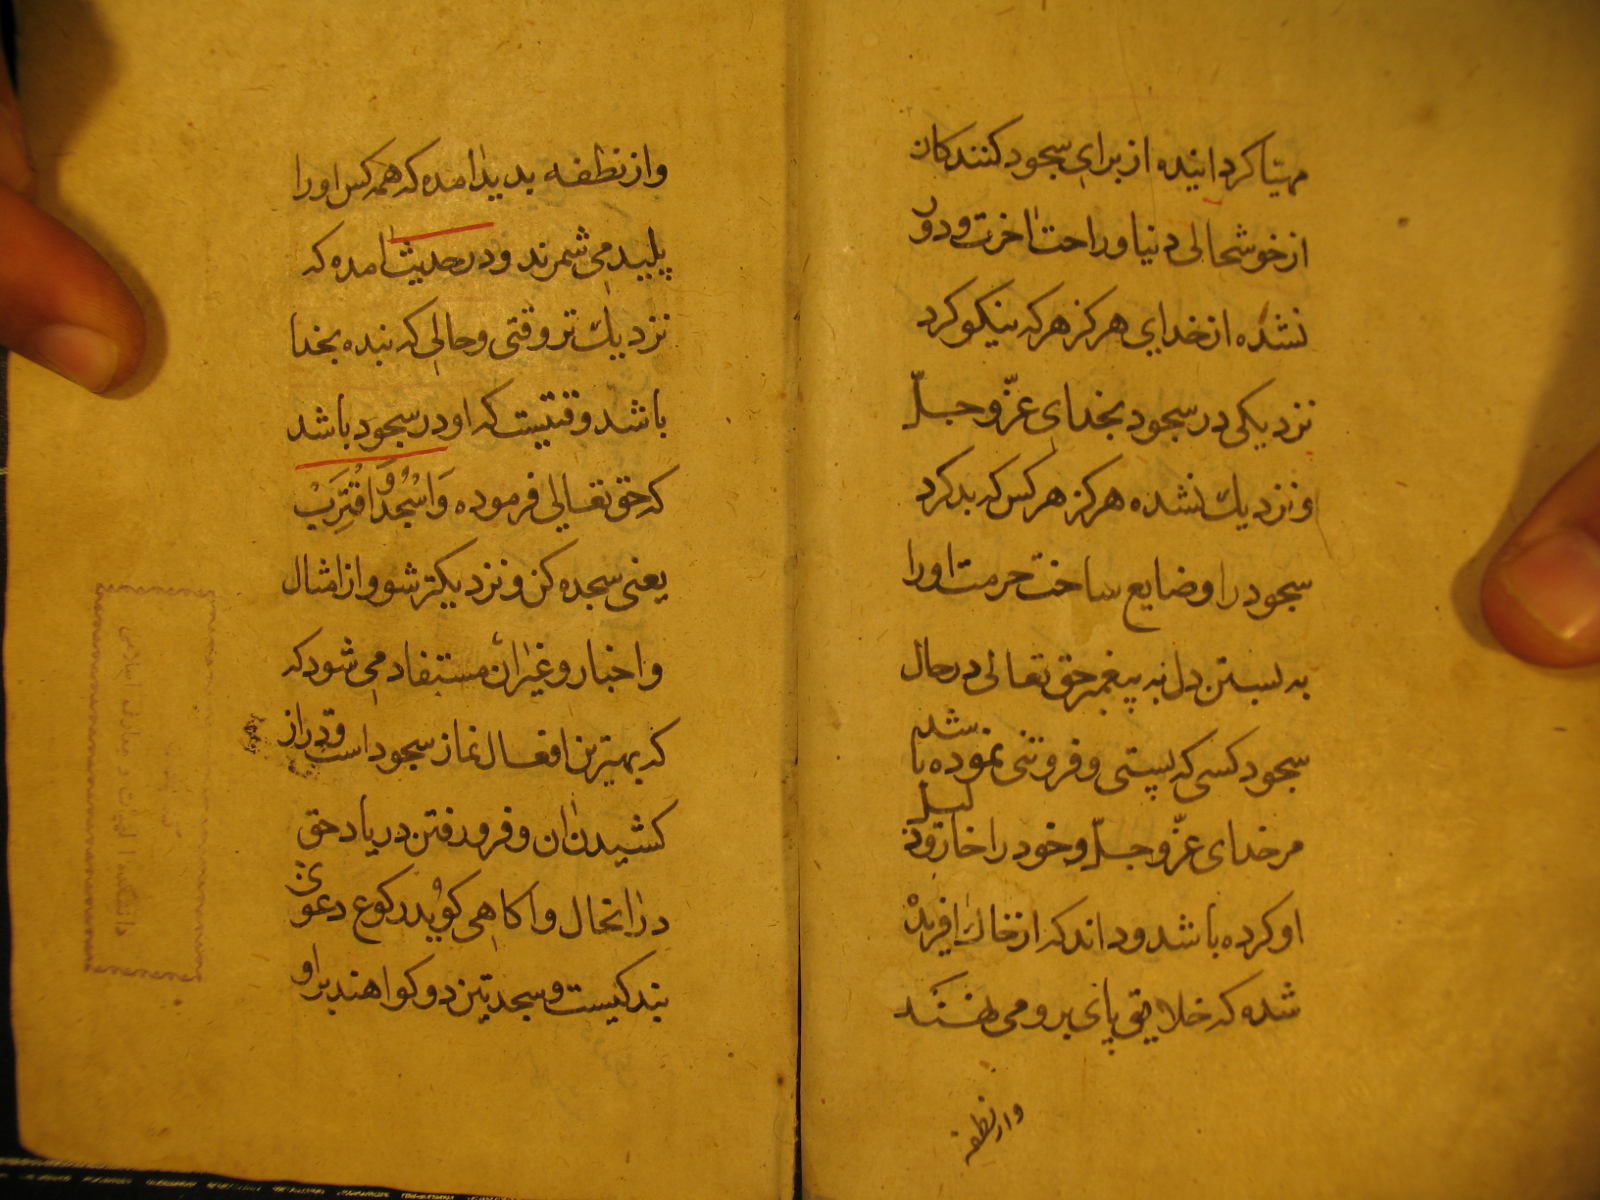 مهیّا کردانیده از برای سجود کنندکان
از خوشحالی دنیا و راحت اخرت و دور
نشده از خدای هرکز هرکه نیکو کرد
نزدیکی در سجود بخدای عزّ و جلّ
و نزدیك نشده هرکز هرکس که بد کرد
سجود را و ضایع ساخت حرمت او را
به بستن دل به پیغمبر حق تعالی در حال
سجود کسی که پستی و فروتنی نموده با شد
مر خدای عزّ و جلّ و خود را خار و ذلیل
او کرده باشد و داند که از خاك افریده
شده که خلایق پای برو می نهند
و از نطفه
و از نطفه بدید امده که همه کس او را
پلید می شمرند و در حدیث امده که
نزدیك تر وقتی و حالی که بنده بخدا
باشد وقتیست که او در سجود باشد
که حق تعالی فرموده وَاسْجُدْ وَاقْتَرِبْ
یعنی سجده کن و نزدیکتر شو و از امثال
و اخبار و غیر ان مستفاد می شود که
که بهترین افعال نماز سجود است و دراز
کشیدن ان و فرو رفتن در یاد حق
در انحال و اکاهی کویند رکوع دعوئ
بندکیست و سجدتین دو کواهند بر او
دانشکده الهیات و معارف اسلامی